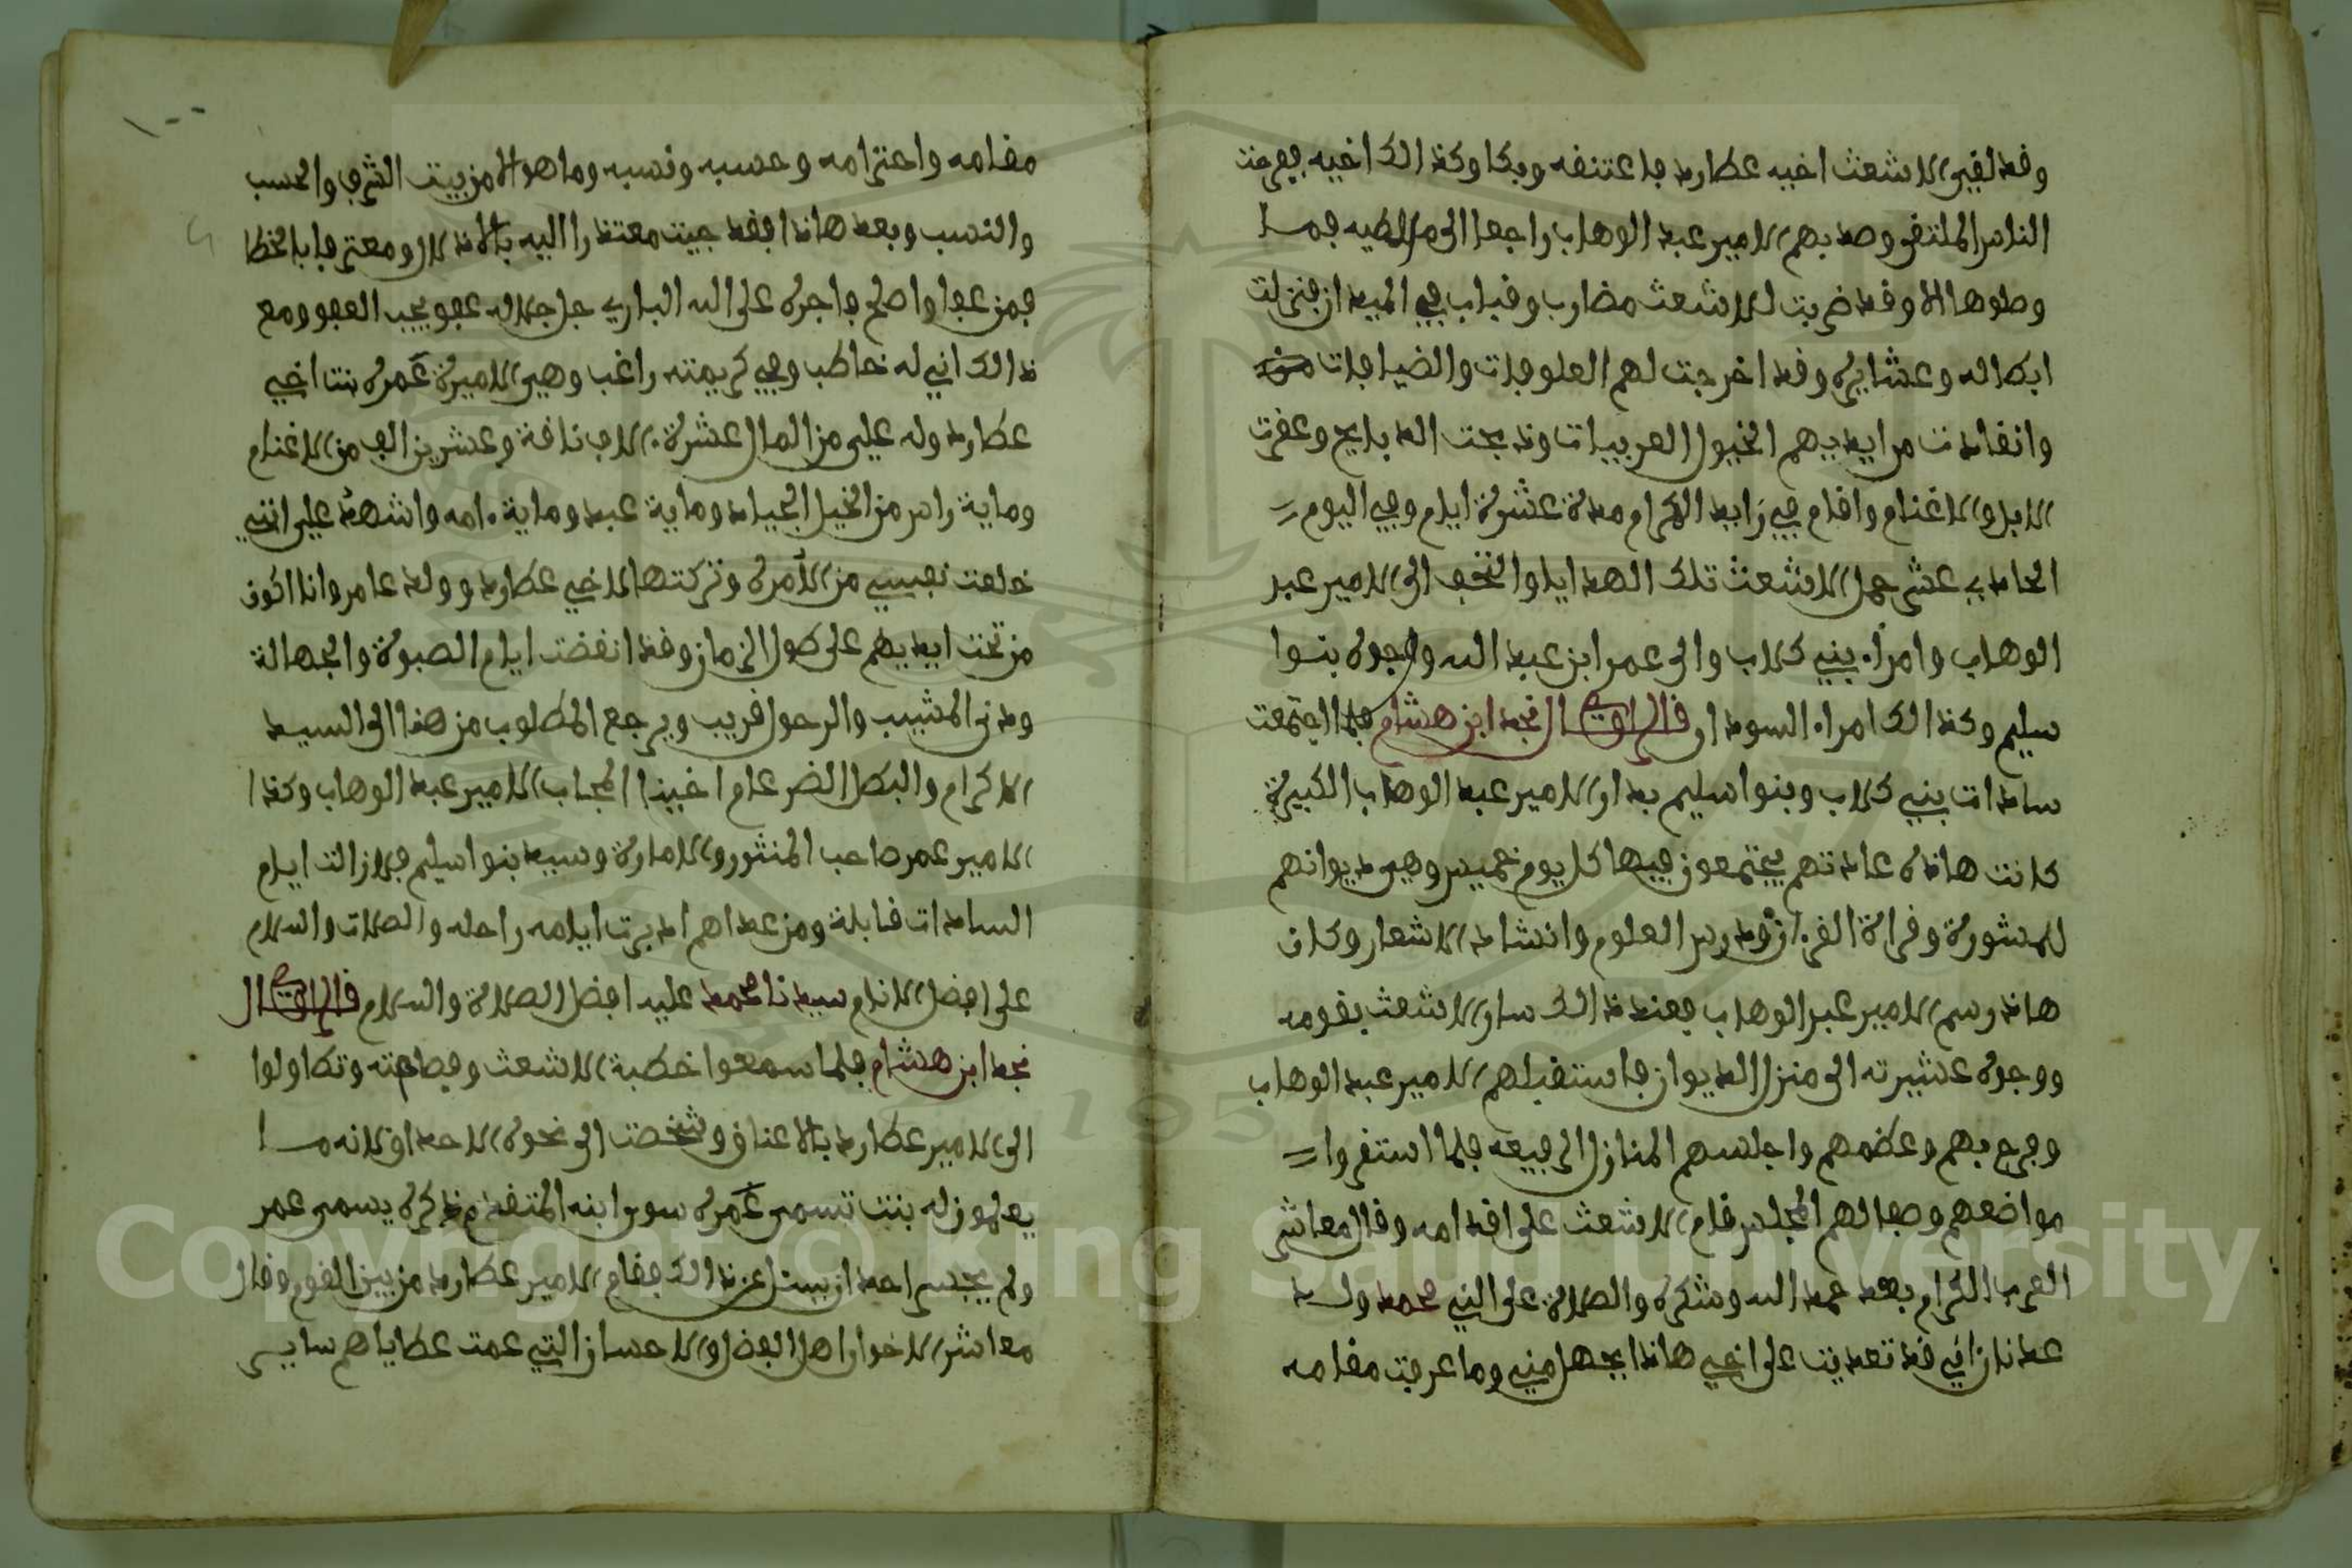 وقد لقي الاشعث اخيه عطارد فاعتنقه وبكا وكذالك اخيه ففرحت
الناس الملتقى وصد بهم الامير عبد الوهاب راجعا الى مرالطيه فما
وصلوها الا وقد ضربت للاشعث مضارب وقباب في الميدان فنزلت
ابطاله وعشايره وقد اخرجت لهم العلوفات والضيافات من
وانقادت مرايديهم الخيول العربيات وذبحت الذبايح وعقرت
الابل والاغنام واقام في زايد الاكرام مدة عشرة ايام وفي اليوم
الحادي عشر حمل الاشعث تلك الهدايا والتحف الى الامير عبد
الوهاب وامراء بني كلاب والى عمر ابن عبد الله ووجوه بنوا
سليم وكذالك امراء السودان قال الراوي قال نجد ابن هشام فلما اجتمعت
سادات بني كلاب وبنوا سليم بدار الامير عبد الوهاب الكبيرة
كانت هاذه عادتهم يجتمعون فيها كل يوم خميس وهي ديوانهم
للمشورة وقراة القرءان ودرس العلوم وانشاد الاشعار وكان
هاذ رسم الامير عبد الوهاب فعند ذالك سار الاشعث بقومه
ووجوه عشيرته الى منزل الديوان فاستقبلهم الامير عبد الوهاب
وفرح بهم وعظمهم واجلسهم المنازل الرفيعه فلما استقروا
مواضعهم وصفا لهم المجلس قام الاشعث على اقدامه وقال معاشر
العرب الكرام بعد حمد الله وشكره والصلاة على النبي محمد ولد
عدنان اني قد تعديت على اخي هاذا بجهل مني وما عرفت مقامه
مقامه واحترامه وحسبه ونسبه وما هو الا من بيت الشرف والحسب
والنسب وبعد هاذا فقد جيت معتذرا اليه بالاذلال ومعترفا بالخطا
فمن عفا واصلح فاجره على الله الباري جل جلاله عفو يحب العفو ومع
ذالك اني له خاطب وفي كريمته راغب وهي الاميرة عمره بنت اخي
عطارد وله علي من المال عشرة ءالاف ناقة وعشرين الف من الاغنام
وماية راس من الخيل الجياد وماية عبد وماية ءامه واشهد علي انني
خلعت نفسي من الامره وتركتها لاخي عطارد وولد عامر وانا اكون
من تحت ايديهم على طول الزمان وقد انقضت ايام الصبوة والجهالة
ودنى المشيب والرحول قريب ويرجع المطلوب من هذا الى السيد
الاكرام والبطل الضرغام اخينا المجاب الامير عبد الوهاب وكذا
الامير عمر صاحب المنثور والامارة وسيد بنوا سليم فلا زالت ايام
السادات قابلة ومن عداهم ادبرت ايامه راحله والصلات والسلام
على افضل الانام سيدنا محمد عليه افضل الصلاة والسلام قال الراوي قال
نجد ابن هشام فلما سمعوا خطبة الاشعث وفصاحته وتطاولوا
الى الامير عطارد بالاعناق وشخصت الى نحوه الاحداق لانه ما
يعلمون له بنت تسمى عمره سوى ابنه المتقدم ذكره يسمى عمر
ولم يجسر احد ان يسئل عن ذالك فقام الامير عطارد من بين القوم وقال
معاشر الاخوان اهل الفضل والاحسان التي عمت عطاياهم ساير